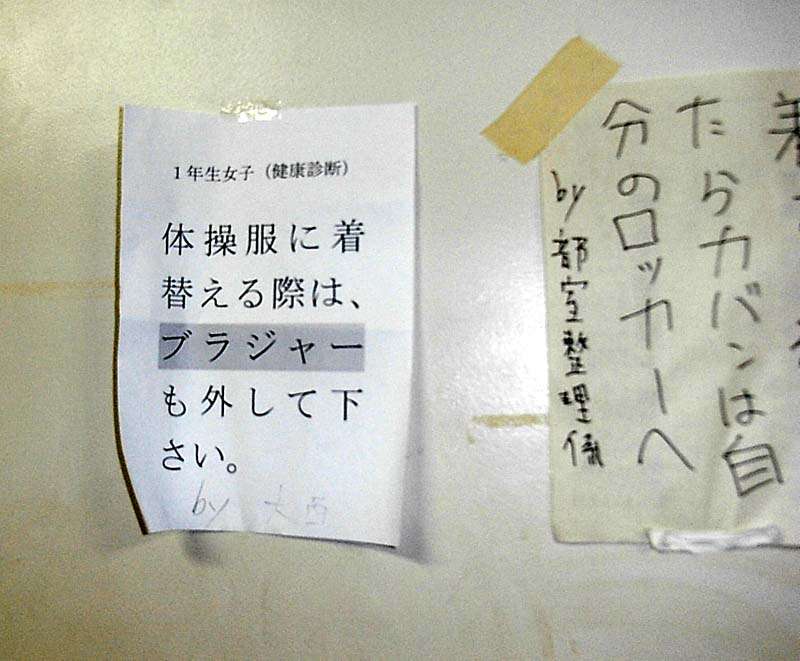 1年生女子（健康診断）
体操服に着
替える際は、
ブラジャー
も外して下
さい。
by 大西
たらカバンは自
分のロッカーへ
by 部室整理係